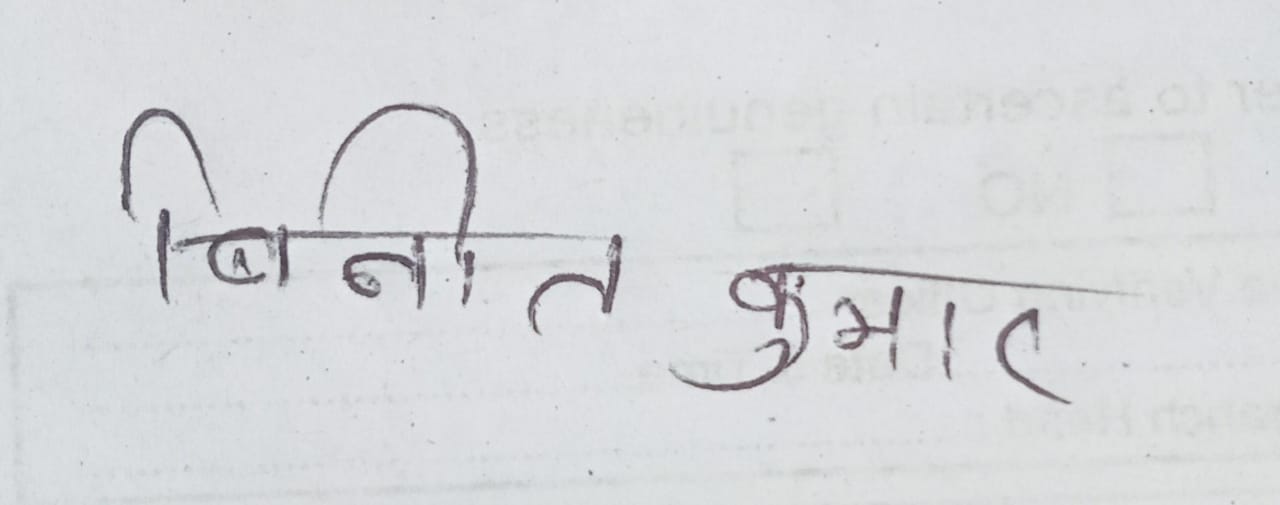 बिनीत कुमार